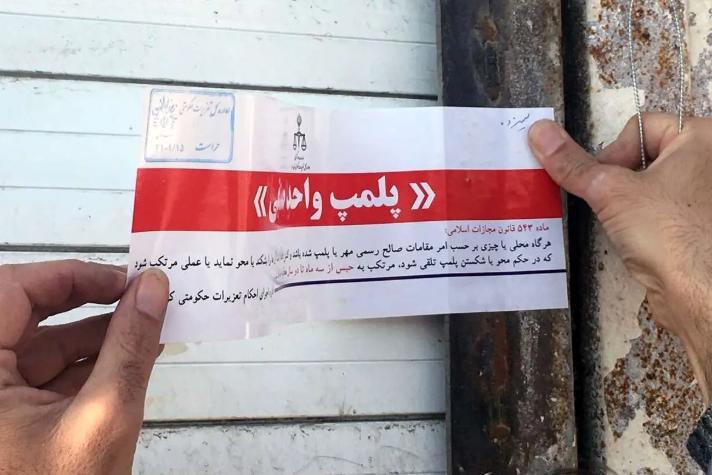 حراست
« پلمپ واحد صنفی »
ماده ۵۴۳ قانون مجازات اسلامی:
هرگاه محلی یا چیزی بر حسب امر مقامات صالح رسمی مهر یا پلمپ شده باشد و کسی یا شکند یا محو نماید یا عملی مرتکب شود
که در حکم محو یا شکستن پلمپ تلقی شود، مرتکب به حبس از سه ماه تا دو سال
اجرای احکام تعزیرات حکومتی